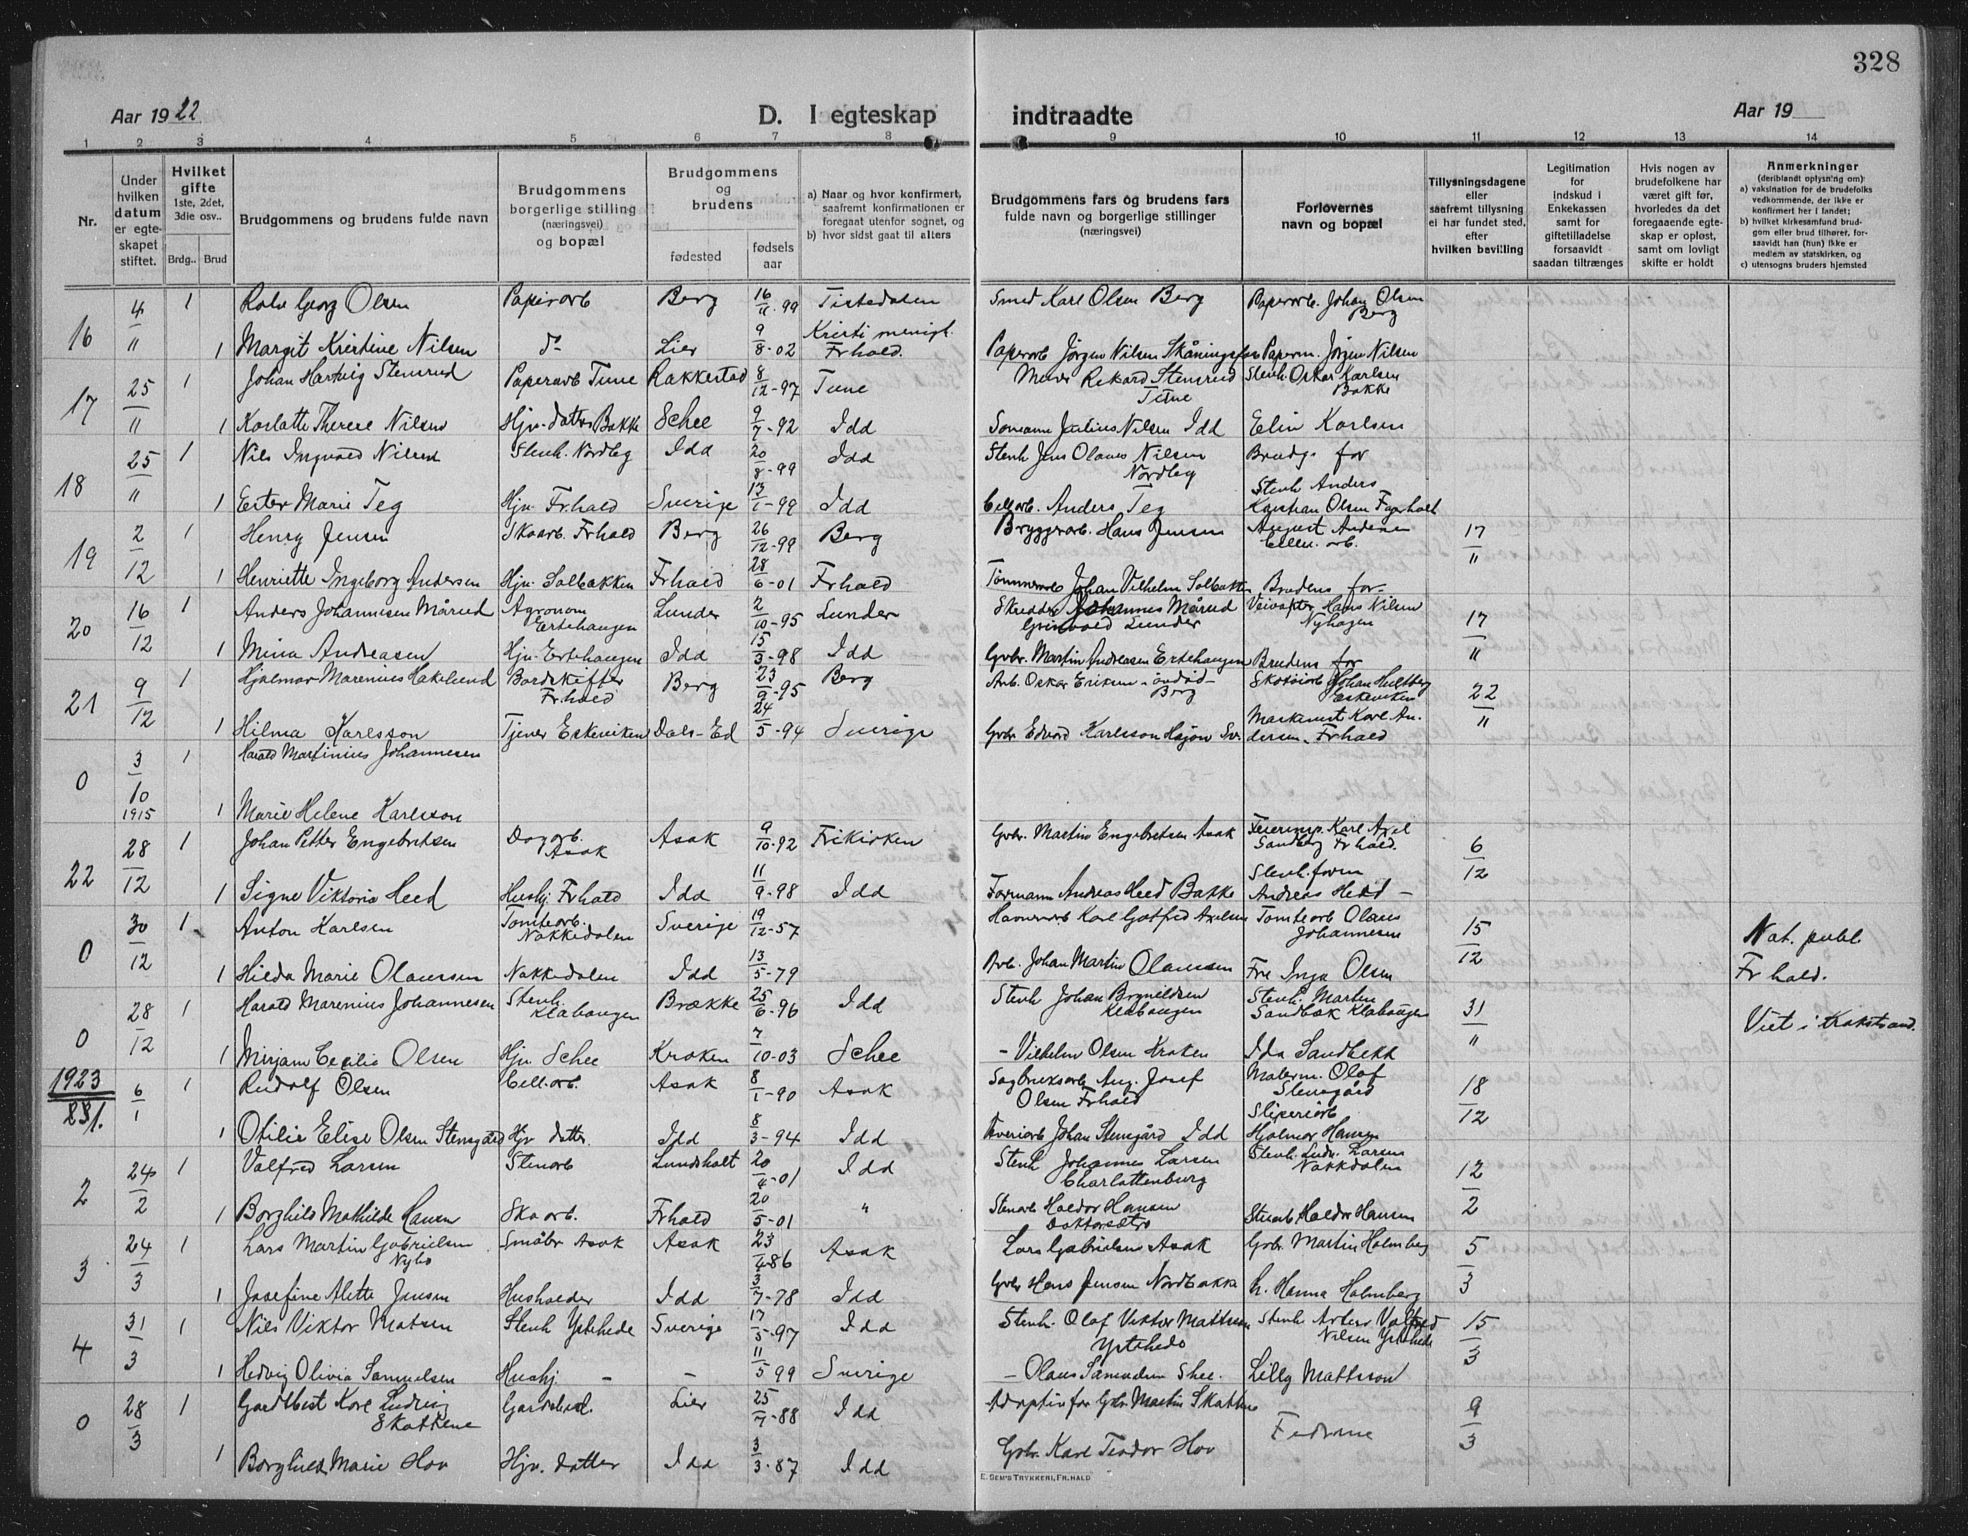 328
Aar 1922 D. I egteskap indtraadte Aar 19
1 2 3 4 5 6 7 8 9 10 11 12 13 14
Nr.
Under hvilken datum er egte-skapet stiftet.
Hvilket gifte 1ste, 2det, 3die osv..
Brdg.. Brud
Brudgommens og brudens fulde navn
Brudgommens borgerlige stilling (næringsvei) og bopæl
Brudgommens og brudens
fødested
fødsels aar
a) Naar og hvor konfirmert, saafremt konfirmationen er foregaat utenfor sognet, og
b) hvor sidst gaat til alters
Brudgommens fars og brudens fars fulde navn og borgerlige stillinger (næringsvei)
Forlovernes navn og bopæl
Tillysningsdagene eller saafremt tillysning ei har fundet sted, efter hvilken bevilling
Legitimation for indskud i Enkekassen samt for giftetilladelse forsaavidt saadan tiltrænges
Hvis nogen av brudefolkene har været gift før, hvorledes da det foregaaende egte-skap er opløst, samt om lovligt skifte er holdt
Anmerkninger (deriblandt oplysning om)
a) vaksination for de brudefolks vedkommende, der ikke er konfirmert her i landet;
b) hvilket kirkesamfund brud-gom eller brud tilhører, for-saavidt han (hun) ikke er medlem av statskirken, og
c) utensogns bruders hjemsted
16 4/11 1 Georg Olsen Papirarb Berg 16/11-99 Tistedalen Smed Karl Olsen Berg Papirarb. Johan Olsen Berg
1 Margit Kristine Nilsen do Lier 9/8-02 Kristi menigh. Frhald. Papirarb Jørgen Nilsen Paperm. Jørgen Nilsen
17 25/11 1 Johan Hartvig Stensrud Papirarb Tune Rakkestad 8/12-97 Tune Murer Rikard Stensrud Tune Stenh. Oskar Karlsen Bakke
1 Karlotte Therese Nilsen Hjv. datter Bakke Schee 9/7-92 Idd Sømann Julius Nilsen Idd Elin Karlsen
18 25/11 1 Nils Ingvald Nilsen Stenh. Nordleg Idd 20/8-99 Idd Stenh Jens Olaves Nilsen Nordleg Brudg. for
1 Ester Marie Teg Hjv. Frhald Sverige 13/1-99 Idd Cellarb. Anders Teg Stenh Anders Kristian Olsen
19 2/12 1 Henry Jensen Skoarb. Frhald Berg 26/12-99 Berg Bryggarb. Hans Jensen August Andersen Cellu. arb. 17/11
1 Henriette Ingeborg Andersen Hjv. Solbakken Frhald 28/6-01 Frhald Tømmerarb Johan Vilhelm Solbakken Brudens for-
20 16/12 1 Anders Johannesen Mårud Agronom Ertehaugen Lunder 2/10-95 Lunder Skredder Johannes Mårud Lunder Veivogter Hans Nilsen Nyhagen 17/11
1 Mina Andreasen Hjv. Ertehaugen Idd 15/3-98 Idd Gbr. Martin Andreasen Ertehaugen Brudens for
21 9/12 1 Hjalmar Marenius Hakelund Bordskifter Frhald Berg 23/9-95 Berg Arb. Oskar Eriksen Berg Skotøiarb Johan Hultberg Eskeviken 22/11
1 Hilma Karlsson Tjener Eskeviken Dals-Ed 24/5-94 Sverige Gbr Edvard Karlsson Murkunst Karl An-dersen. Frhald
0 3/10 1915 1 Harald Martinius Johannesen
1 Marie Helene Karlsson
22 28/12 1 Johan Petter Engebretsen Dagarb. Asak Asak 9/10-92 Frikirken Gbr. Martin Engebretsen Asak Feiermp. Karl Axel Sandberg Frhald. 6/12
1 Signe Viktoria Heed Hushj. Frhald Idd 11/9-98 Idd Formann Andreas Heed Bakke Stenh. form Andreas Heed -
0 30/12 1 Anton Karlsen Tomtearb. Nakkedalen Sverige 19/12-57 Havnearb Karl Gotfred Axelsen Tomtearb Olaus Johannesen 15/12 Not. publ. Frhald.
1 Hilda Marie Olaussen Nakkedalen Idd 13/5-79 Arb. Johan Martin Olaussen Fre Inga Olsen
0 28/12 1 Harald Marenius Johannesen Stenh. Klabaugen Brække 25/6-96 Idd Stenh Johan Brynildsen Klabaugen Stenh. Martin Sandbæk Klabaugen 31/11 Viet i Krokstrand.
1 Mirjam Cecilie Olsen Hjv Schee Kroken 7/10-03 Schee - Vilhelm Olsen Kroken Ida Sandbekk
1923
1. 6/1 1 Rudolf Olsen Cell.arb. Asak 8/1-90 Asak Sagbruksarb. Aug. Josef Olsen Frhald Malerm. Olof Stensgård 18/12
1 Otilie Elise Olsen Stensgård Hjv datter. Idd 8/3-94 Idd Johan Stensgård Idd Sliperiarb Hjalmar Hansen
2 24/2 1 Valfred Larsen Stenarb Lundsholt 20/4-01 Idd Stenh Johannes Larsen Charlottenburg Stenh. Ludv. Larsen Nakkdalen 12/2
1 Borghild Mathilde Hansen Skoarb. Frhald 20/5-01 " Stenarb Haldor Hansen Doktorsætre Stenarb. Haldor Hansen
3 24/3 1 Lars Martin Gabrielsen Nybo Småbr Asak Asak 23/4-86 Asak Lars Gabrielsen Asak Gbr. Martin Holmberg 5/3
1 Josefine Alette Jensen Husholder Idd 3/7-78 Idd Gbr Hans Jensen Nordbakke h. Hanna Holmberg
4 31/3 1 Nils Viktor Matsen Stenh Ystehede Sverige 17/5-97 Idd Stenh. Olof Viktor Mattsson Ystehede Stenh Artur Valfred Nilsen Ystehede 15/3
1 Hedvig Olivia Samuelsen Hushj. - - 11/5 99 Sverige - Olaus Samuelsen Shee. Lilly Mattsson
0 28/3 1 Gårdbest Kore Ludvig Skottene Gårdsbest. Lier 25/7-88 Idd Adoptivfar Gbr. Martin Skottene Fedrene 9/3
1 Borghild Marie Hov Hjv. datter Idd 3/3-87 Idd Gbr. Karl Teodor Hov
E. SEM'S TRYKKERI, FR.HALD